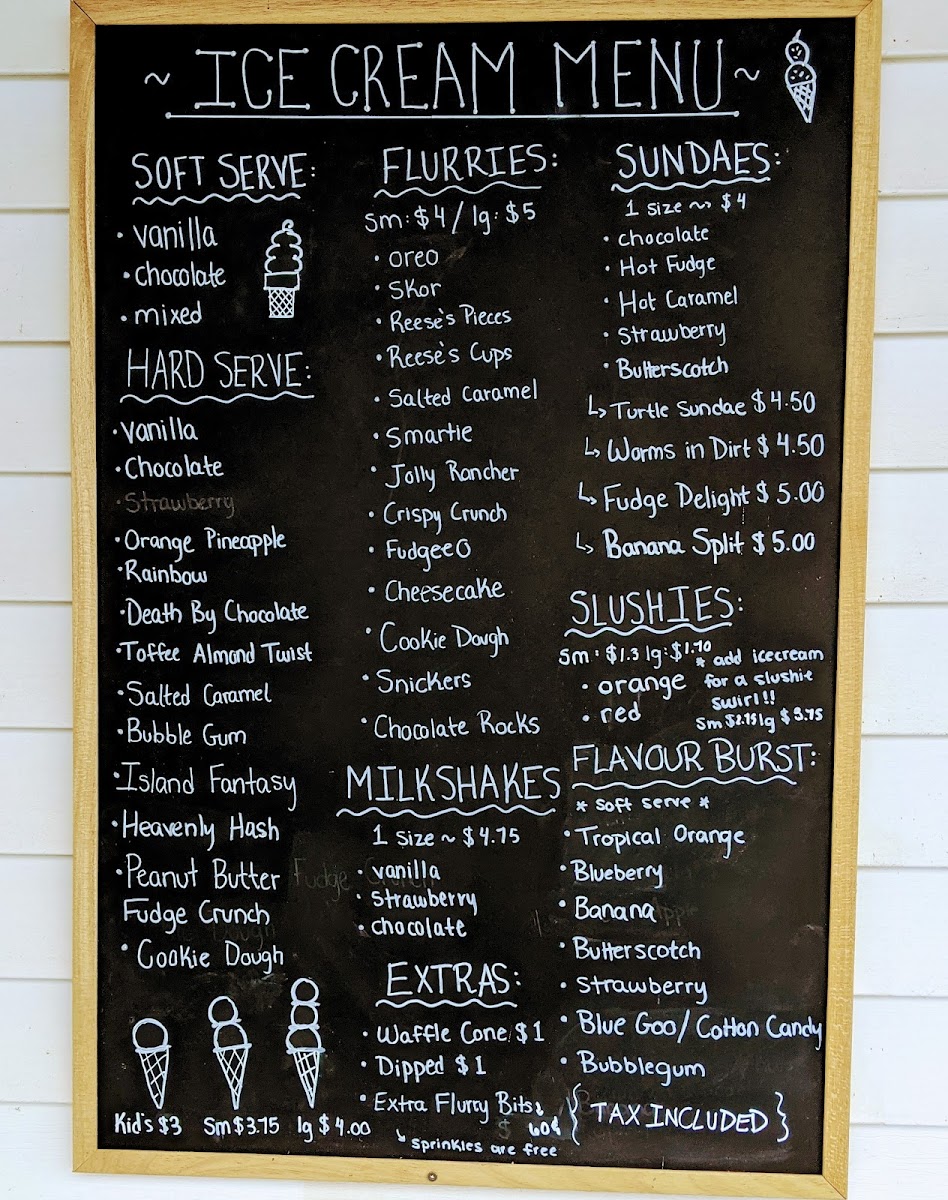 ~ ICE CREAM MENU ~
SOFT SERVE:
• vanilla
• chocolate
• mixed
HARD SERVE:
• vanilla
• Chocolate
• Strawberry
• Orange Pineapple
• Rainbow
• Death By Chocolate
• Toffee Almond Twist
• Salted Caramel
• Bubble Gum
• Island Fantasy
• Heavenly Hash
• Peanut Butter
Fudge Crunch
• Cookie Dough
Kid's $3 Sm $3.75 lg $4.00
FLURRIES:
sm: $4 / lg: $5
• oreo
• Skor
• Reese's Pieces
• Reese's Cups
• Salted Caramel
• Smartie
• Jolly Rancher
• Crispy Crunch
• FudgeeO
• Cheesecake
• Cookie Dough
• Snickers
• Chocolate Rocks
MILKSHAKES
1 size ~ $4.75
• vanilla
• strawberry
• chocolate
EXTRAS:
• Waffle Cone $1
• Dipped $1
• Extra Flurry Bits
60¢
↳ sprinkles are free
SUNDAES:
1 size ~ $4
• chocolate
• Hot Fudge
• Hot Caramel
• Strawberry
• Butterscotch
↳ Turtle Sundae $4.50
↳ Worms in Dirt $4.50
↳ Fudge Delight $5.00
↳ Banana Split $5.00
SLUSHIES:
Sm: $1.3 lg: $1.70
• orange
• red
* add icecream
for a slushie
swirl!!
Sm $2.75 lg $3.75
FLAVOUR BURST:
* soft serve *
• Tropical Orange
• Blueberry
• Banana
• Butterscotch
• Strawberry
• Blue Goo/Cotton Candy
• Bubblegum
{TAX INCLUDED}